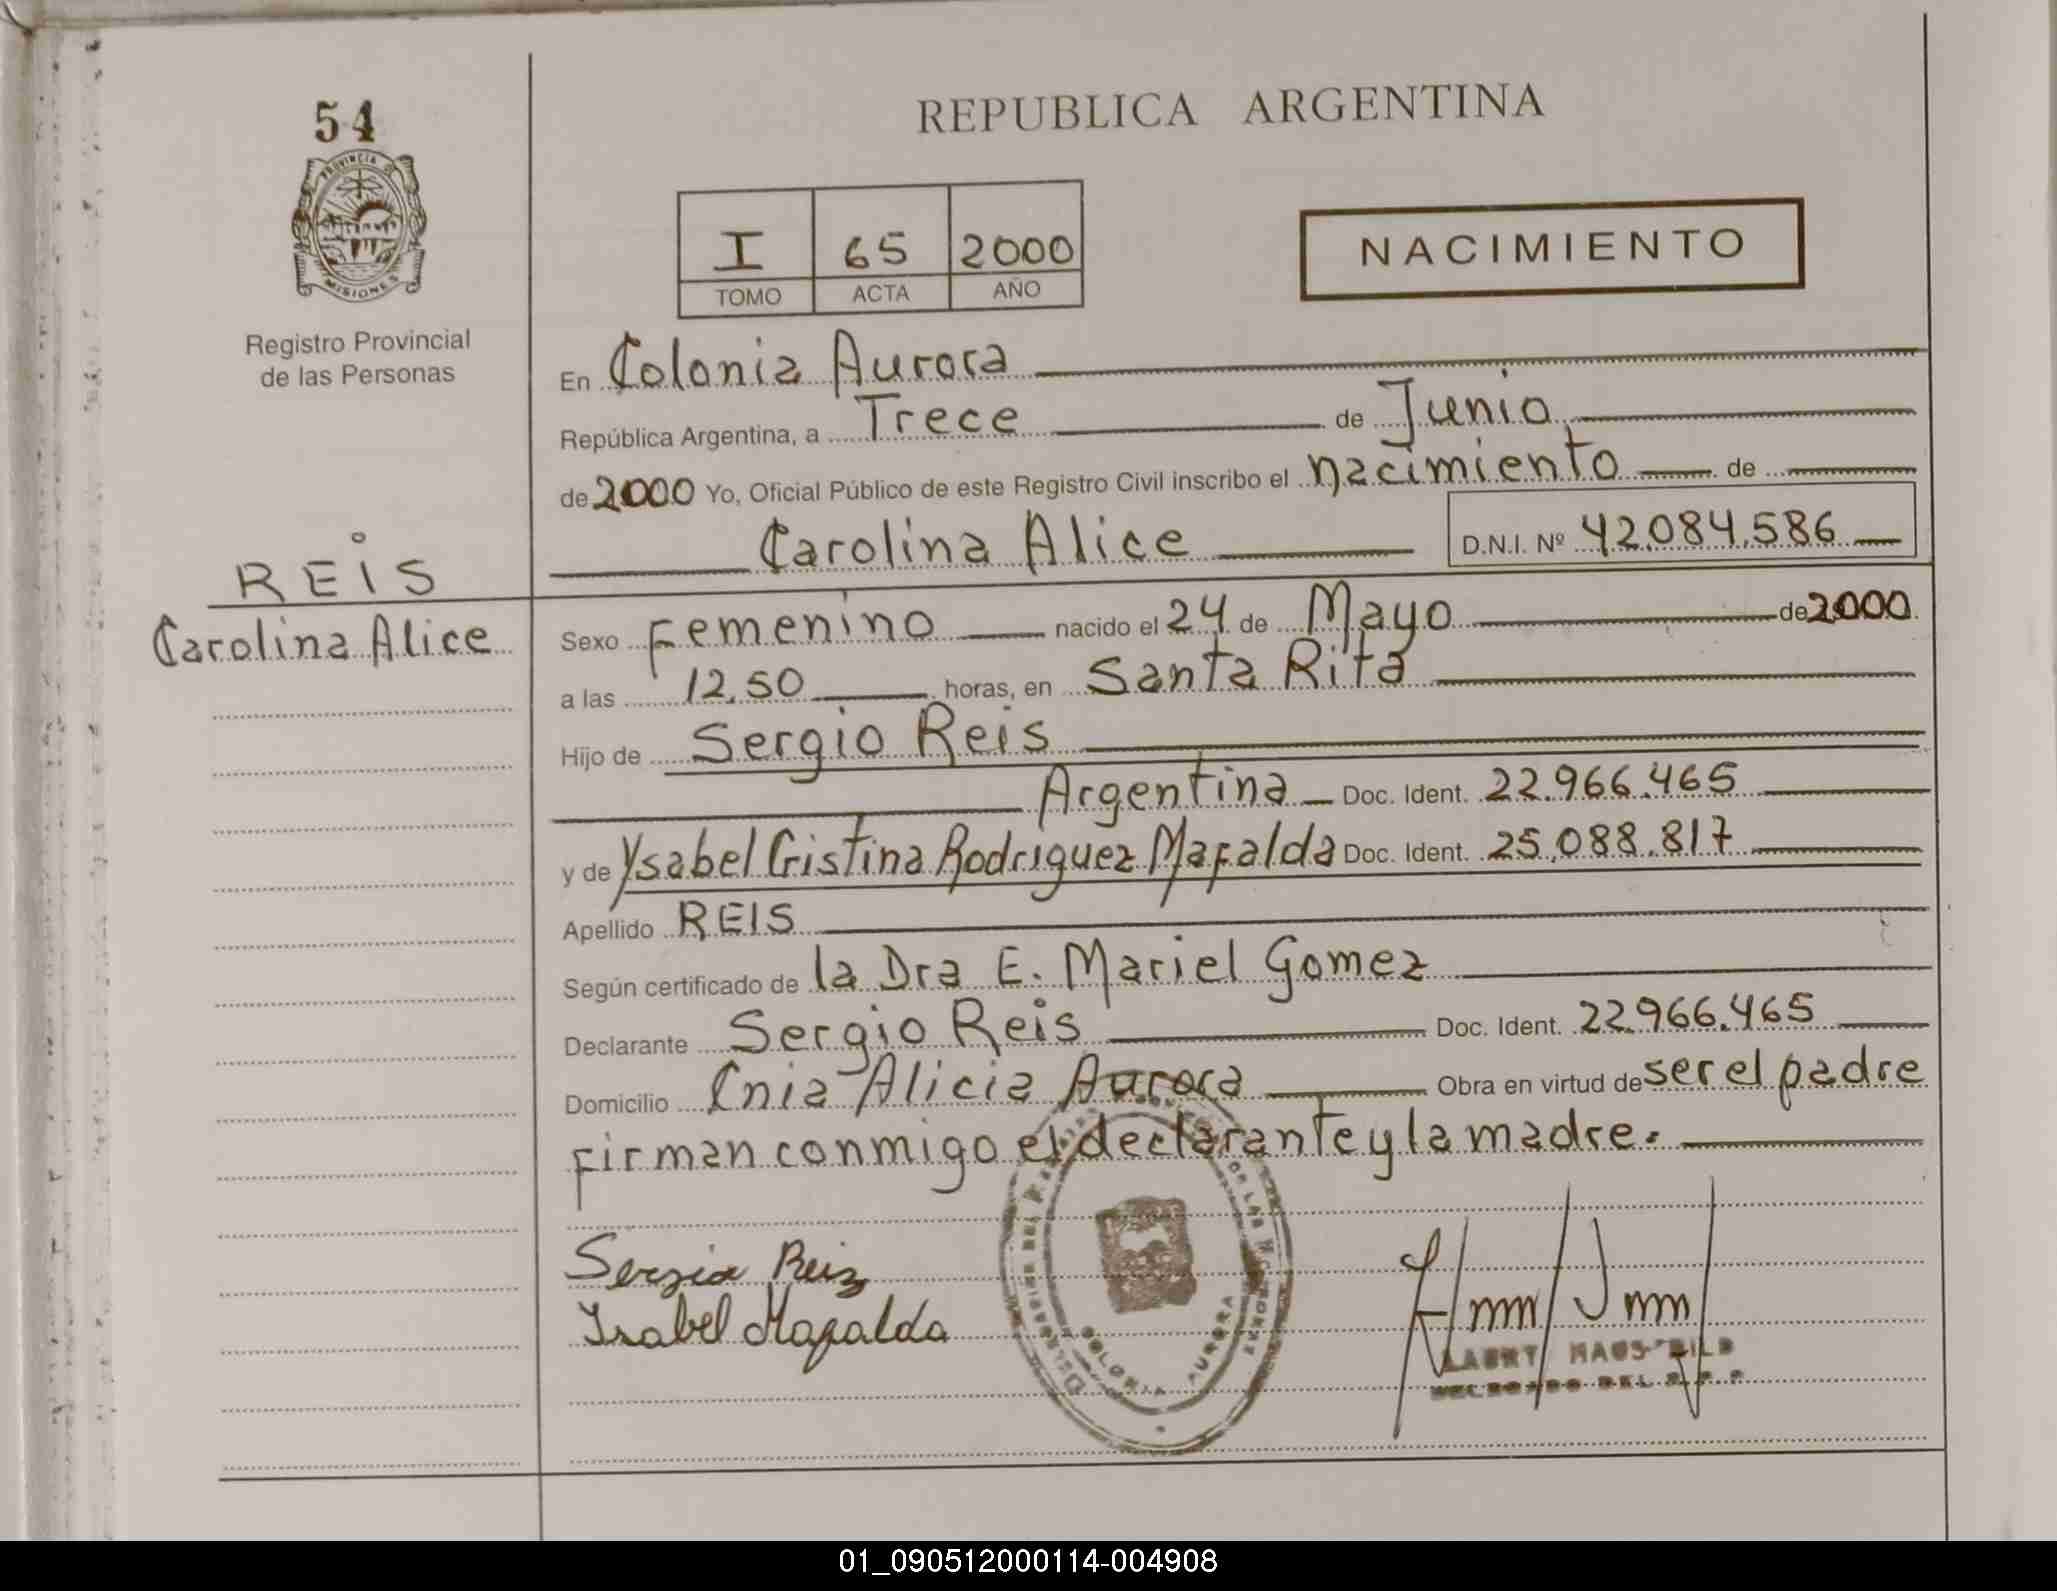 54
PROVINCIA DE
MISIONES
Registro Provincial
de las Personas
REIS
Carolina Alice
REPUBLICA ARGENTINA
I 65 2000
TOMO ACTA AÑO
NACIMIENTO
En Colonia Aurora
República Argentina, a Trece de Junio
de 2000 Yo, Oficial Público de este Registro Civil inscribo el nacimiento de
Carolina Alice D.N.I. Nº 42.084.586
Sexo Femenino nacido el 24 de Mayo de 2000
a las 12.50 horas, en Santa Rita
Hijo de Sergio Reis
Argentina Doc. Ident. 22.966.465
y de Ysabel Cristina Rodriguez Mafalda Doc. Ident. 25.088.817
Apellido REIS
Según certificado de la Dra E. Mariel Gomez
Declarante Sergio Reis Doc. Ident. 22.966.465
Domicilio Cnia Alicia Aurora Obra en virtud de ser el padre
firman conmigo el declarante y la madre.
Sergio Reis
Isabel Mafalda
DE LAS
COLONIA AURORA